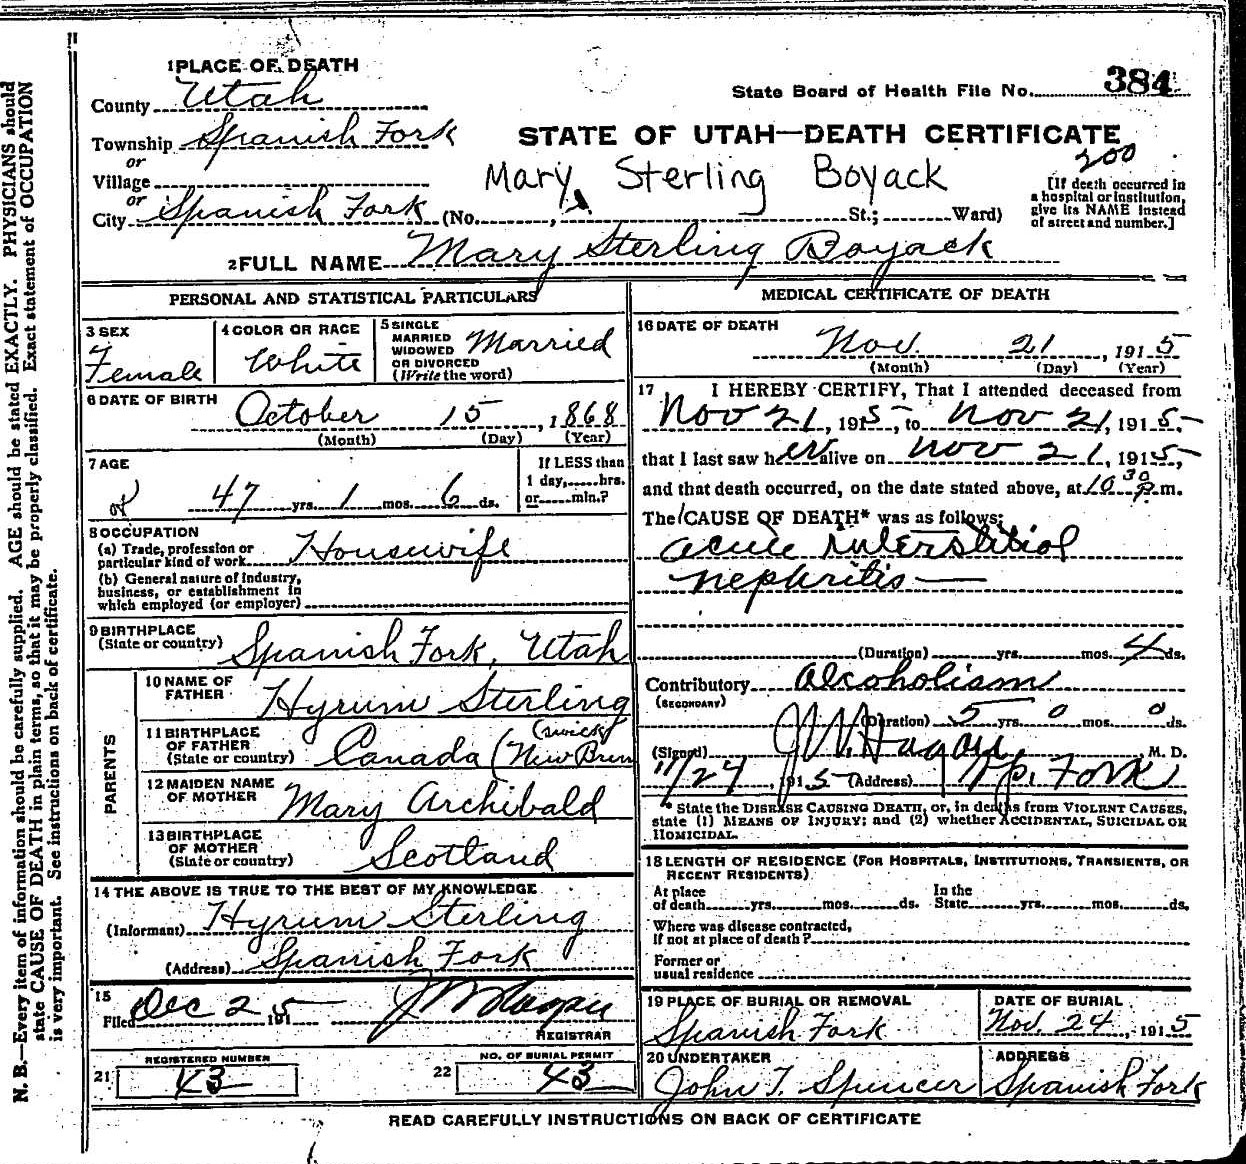 1 PLACE OF DEATH
County Utah
State Board of Health File No. 384
Township Spanish Fork
or
STATE OF UTAH—DEATH CERTIFICATE
200
Village
Mary Sterling Boyack
or
City Spanish Fork (No. , St.; Ward)
[If death occurred in
a hospital or institution,
give its NAME instead
of street and number.]
2 FULL NAME Mary Sterling Boyack
PERSONAL AND STATISTICAL PARTICULARS
3 SEX
Female
4 COLOR OR RACE
White
5 SINGLE
MARRIED
WIDOWED
OR DIVORCED
(Write the word)
Married
6 DATE OF BIRTH
October 15, 1868
(Month) (Day) (Year)
7 AGE
47 yrs. 1 mos. 6 ds.
If LESS than
1 day, hrs.
or min.?
8 OCCUPATION
(a) Trade, profession or
particular kind of work Housewife
(b) General nature of industry,
business, or establishment in
which employed (or employer)
9 BIRTHPLACE
(State or country) Spanish Fork, Utah
PARENTS
10 NAME OF
FATHER Hyrum Sterling
11 BIRTHPLACE
OF FATHER
(State or country) Canada (New Brunswick)
12 MAIDEN NAME
OF MOTHER Mary Archibald
13 BIRTHPLACE
OF MOTHER
(State or country) Scotland
14 THE ABOVE IS TRUE TO THE BEST OF MY KNOWLEDGE
(Informant) Hyrum Sterling
(Address) Spanish Fork
15
Filed Dec 2 1915
REGISTRAR
REGISTERED NUMBER
21 43
NO. OF BURIAL PERMIT
22 43
MEDICAL CERTIFICATE OF DEATH
16 DATE OF DEATH
Nov. 21, 1915
(Month) (Day) (Year)
17 I HEREBY CERTIFY, That I attended deceased from
Nov 21, 1915, to Nov 21, 1915,
that I last saw her alive on Nov 21, 1915,
and that death occurred, on the date stated above, at 10 30 P. m.
The CAUSE OF DEATH* was as follows:
acute interstitial
nephritis
(Duration) yrs. mos. 4 ds.
Contributory Alcoholism
(SECONDARY)
(Duration) 5 yrs. 0 mos. 0 ds.
(Signed) J W Hagan, M. D.
1915 (Address) Sp. Fork
* State the DISEASE CAUSING DEATH, or, in deaths from VIOLENT CAUSES,
state (1) MEANS OF INJURY; and (2) whether ACCIDENTAL, SUICIDAL OR
HOMICIDAL.
18 LENGTH OF RESIDENCE (FOR HOSPITALS, INSTITUTIONS, TRANSIENTS, OR
RECENT RESIDENTS)
At place
of death yrs. mos. ds.
In the
State yrs. mos. ds.
Where was disease contracted,
if not at place of death?
Former or
usual residence
19 PLACE OF BURIAL OR REMOVAL
Spanish Fork
DATE OF BURIAL
Nov. 24, 1915
20 UNDERTAKER
John T. Spencer
ADDRESS
Spanish Fork
READ CAREFULLY INSTRUCTIONS ON BACK OF CERTIFICATE
N. B.—Every item of information should be carefully supplied. AGE should be stated EXACTLY. PHYSICIANS should
state CAUSE OF DEATH in plain terms, so that it may be properly classified. Exact statement of OCCUPATION
is very important. See instructions on back of certificate.